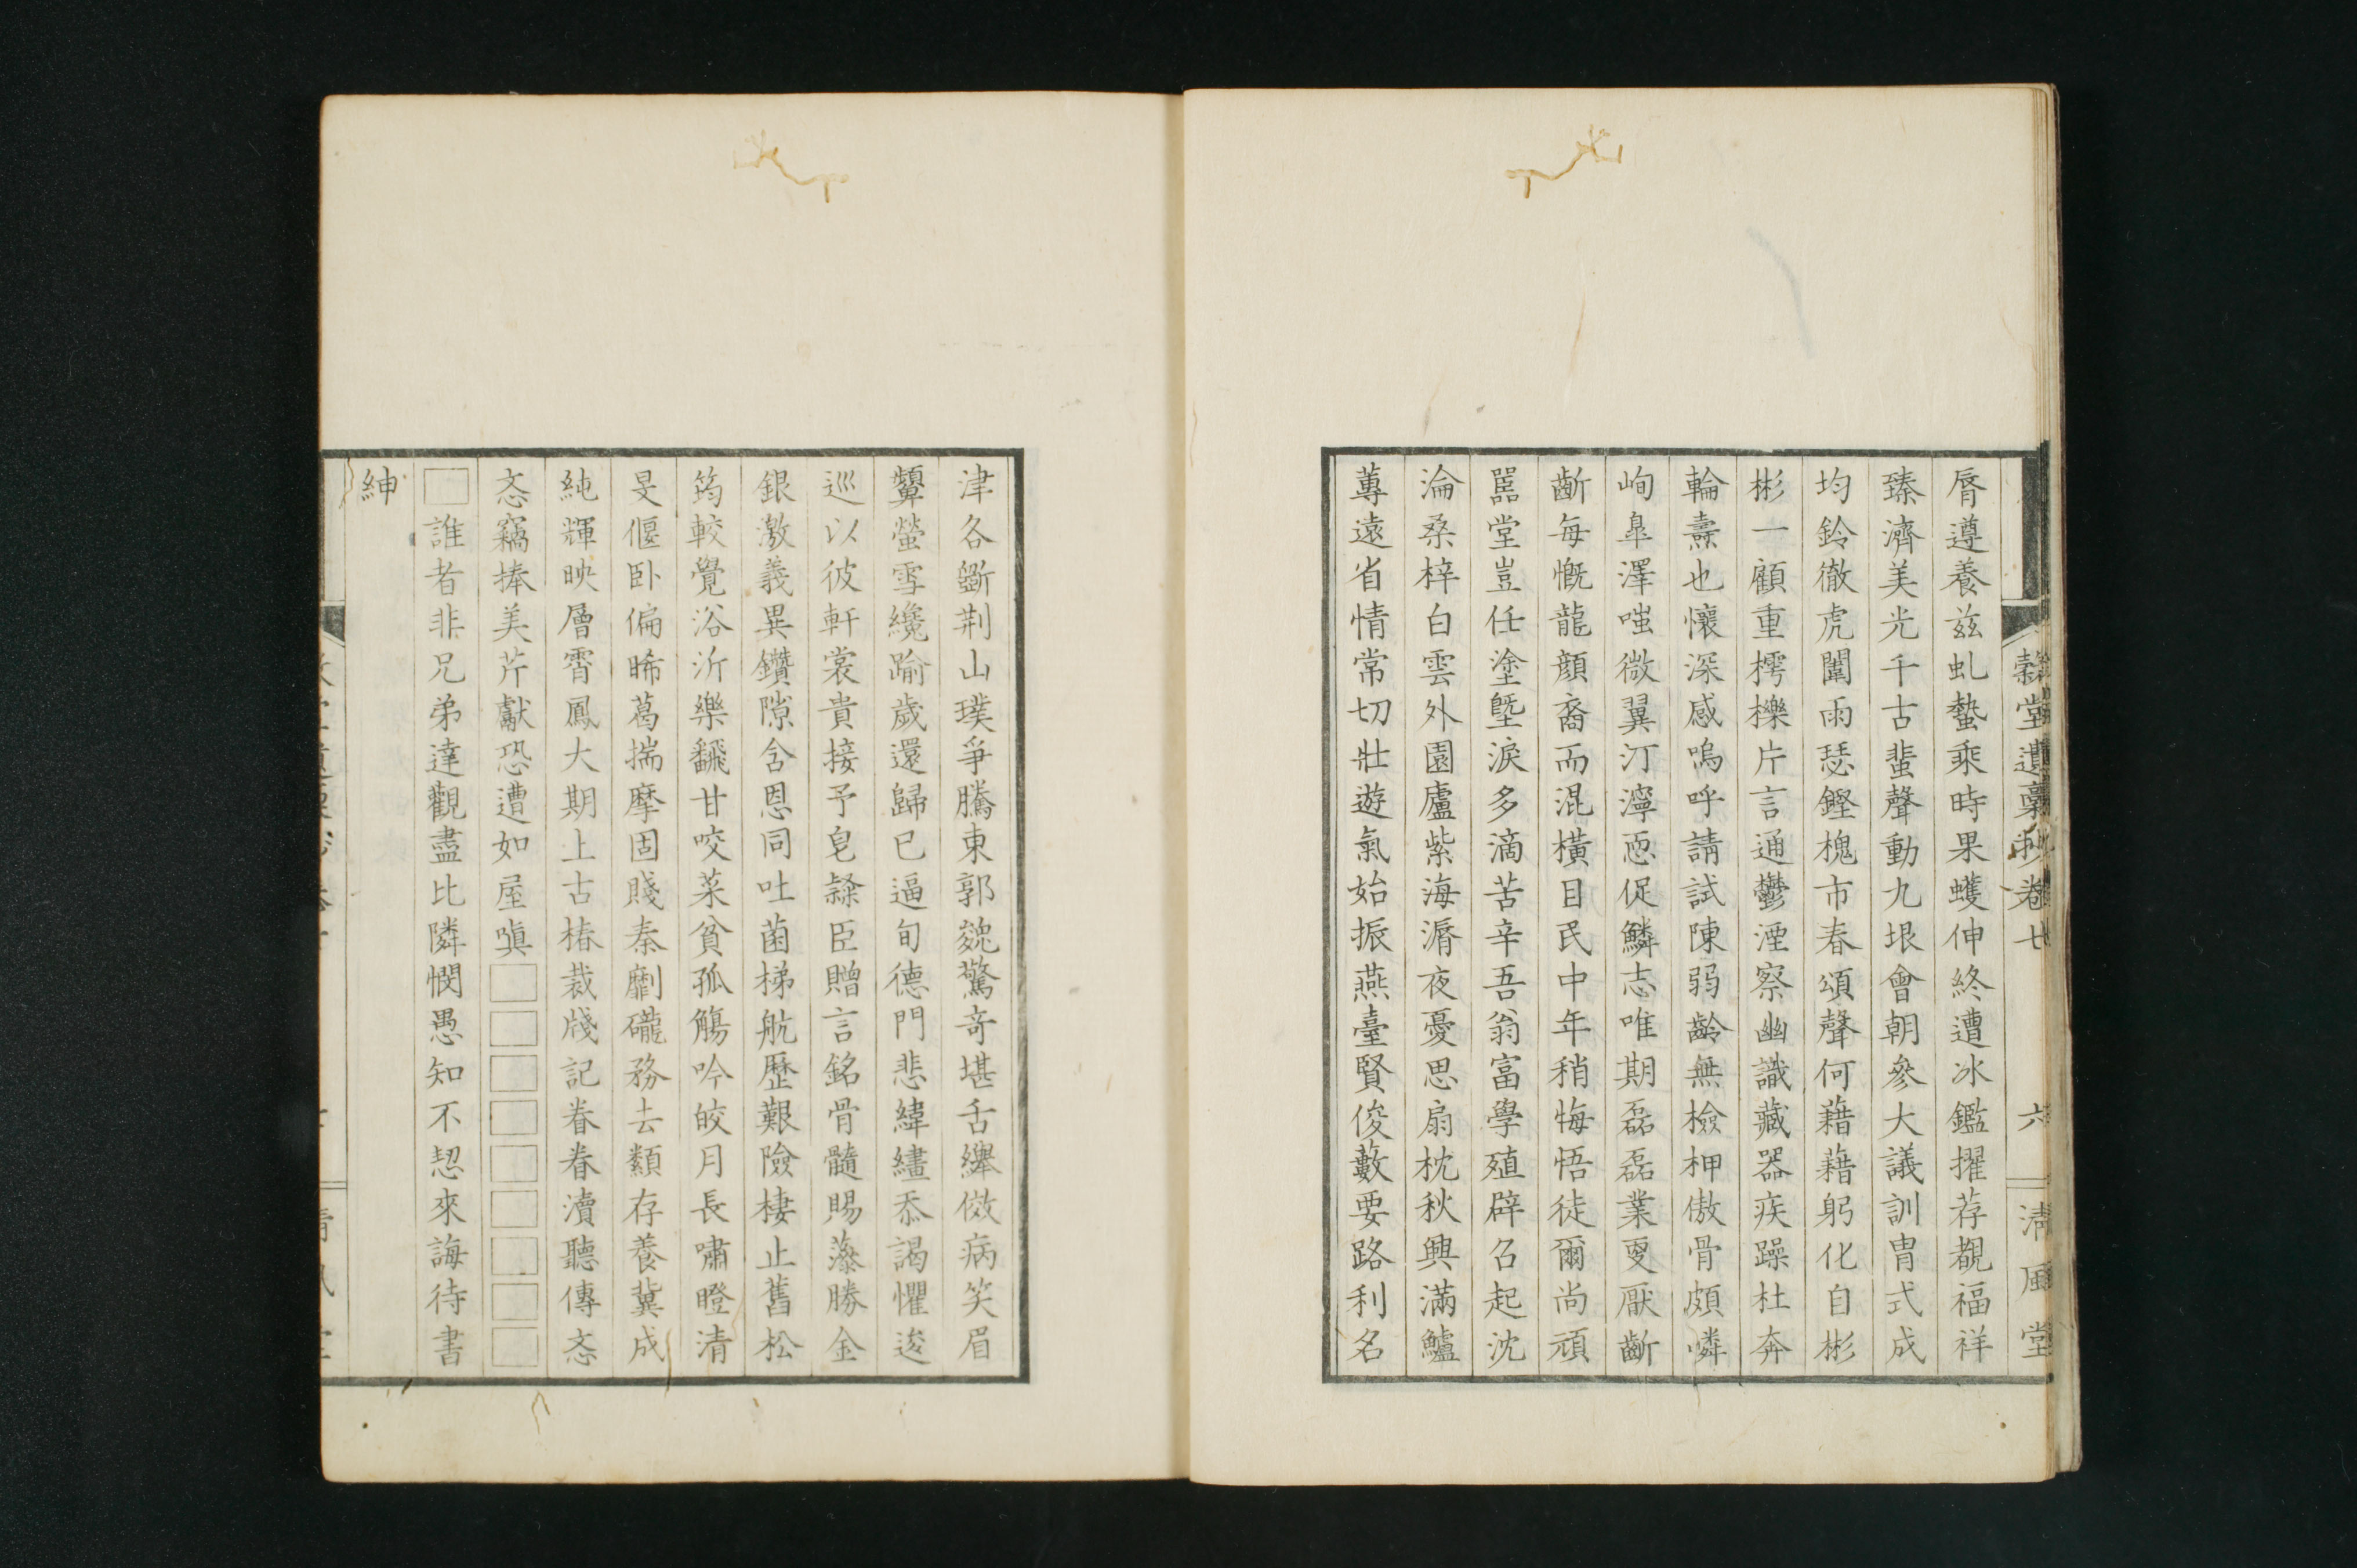 穀堂遺稾抄卷七 六 清風堂
脣遵養兹虬蟄乘時果蠖伸終遭冰鑑擢荐覩福祥
臻濟美光千古蜚聲動九垠會朝參大議訓冑式成
均鈴徹虎闈雨瑟鏗槐市春頌聲何藉藉躬化自彬
彬一顧重樗櫟片言通鬱湮察幽識藏器疾躁杜奔
輪燾也懷深感嗚呼請試陳弱齡無檢柙傲骨頗嶙
峋皐澤嗤微翼汀濘恧促鱗志唯期磊磊業叓厭齗
齗每慨龍顔裔而混橫目民中年稍悔悟徒爾尚頑
嚚堂豈任塗塈淚多滴苦辛吾翁富學殖辟召起沈
淪桑梓白雲外園廬紫海漘夜憂思扇枕秋興滿鱸
蓴遠省情常切壯遊氣始振燕臺賢俊藪要路利名
津各斲荆山璞爭騰東郭㕙驚奇堪舌縪傚病笑眉
顰螢雪纔踰歲還歸已逼旬德門悲緯繣忝謁懼逡
巡以彼軒裳貴接予皂隸臣贈言銘骨髓賜藻勝金
銀激義異鑽隙含恩同吐菌梯航歷艱險棲止舊松
筠較覺浴沂樂飜甘咬菜貧孤觴吟皎月長嘯瞪清
旻偃臥偏晞葛揣摩固賤秦劘礲務去纇存養冀成
純輝映層霄鳳大期上古椿裁牋記眷眷瀆聽傳忞
忞竊捧美芹獻恐遭如屋嗔□□□□□□□□□
□誰者非兄弟達觀盡比隣憫愚知不恝來誨待書
紳